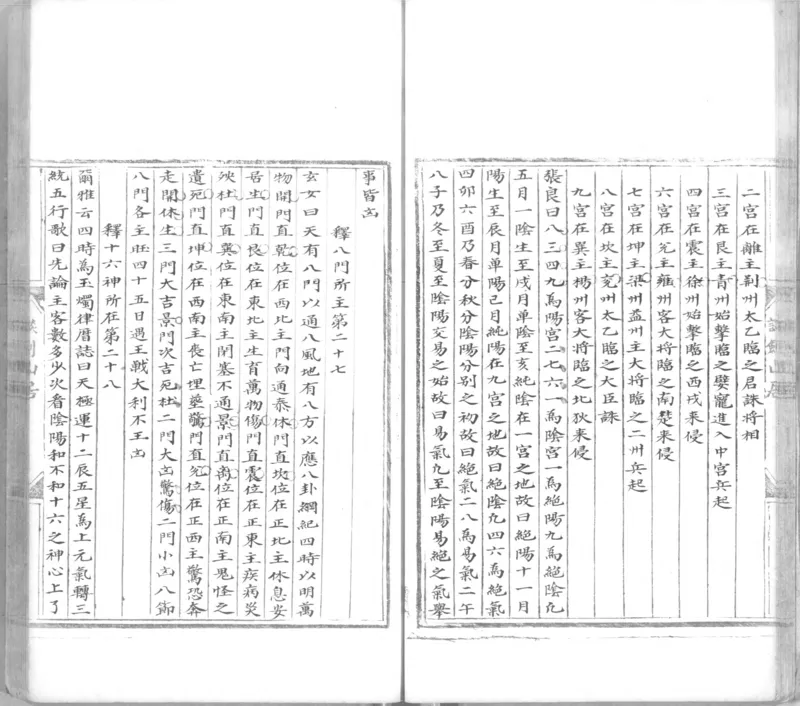 二宮在離主荆州太乙臨之君誅將相
三宮在艮主青州始擊臨之嬖寵進入中宮兵起
四宮在震主徐州始擊臨之西戎来侵
六宮在兊主雍州客大將臨之南楚来侵
七宮在坤主梁州益州主大將臨之二州兵起
八宮在坎主兗州太乙臨之大臣誅
九宮在巽主楊州客大將臨之北狄来侵
張良曰八三四九為陽宮二七六一為陰宮一為絕陽九為絕陰凢
五月一陰生至戌月單陰至亥純陰在一宮之地故曰絕陽十一月
陽生至辰月單陽巳月純陽在九宮之地故曰絕陰凢四六為絕氣
四卯六酉乃春分秋分陰陽分别之初故曰絕氣二八為易氣二午
八子乃冬至夏至陰陽交易之始故曰易氣凢至陰陽易絕之氣舉
事皆凶
釋八門所主第二十七
玄女曰天有八門以通八風地有八方以應八卦綱紀四時以明萬
物開門直乾位在西北主門向通泰休門直坎位在正北主休息安
居生門直艮位在東北主生育萬物傷門直震位在正東主疾病災
殃杜門直巽位在東南主閉塞不通景門直离位在正南主鬼怪之
遺死門直坤位在西南主喪亡埋塟驚門直兊位在正西主驚恐奔
走開休生三門大吉景門次吉死杜二門大凶驚傷二門小凶八節
八門各主旺四十五日遇王戰大利不王凶
釋十六神所在第二十八
爾雅云四時為玉燭律曆誌曰天極運十二辰五星為上元氣轉三
統五行歌曰先論主客數多少次看陰陽和不和十六之神心上了